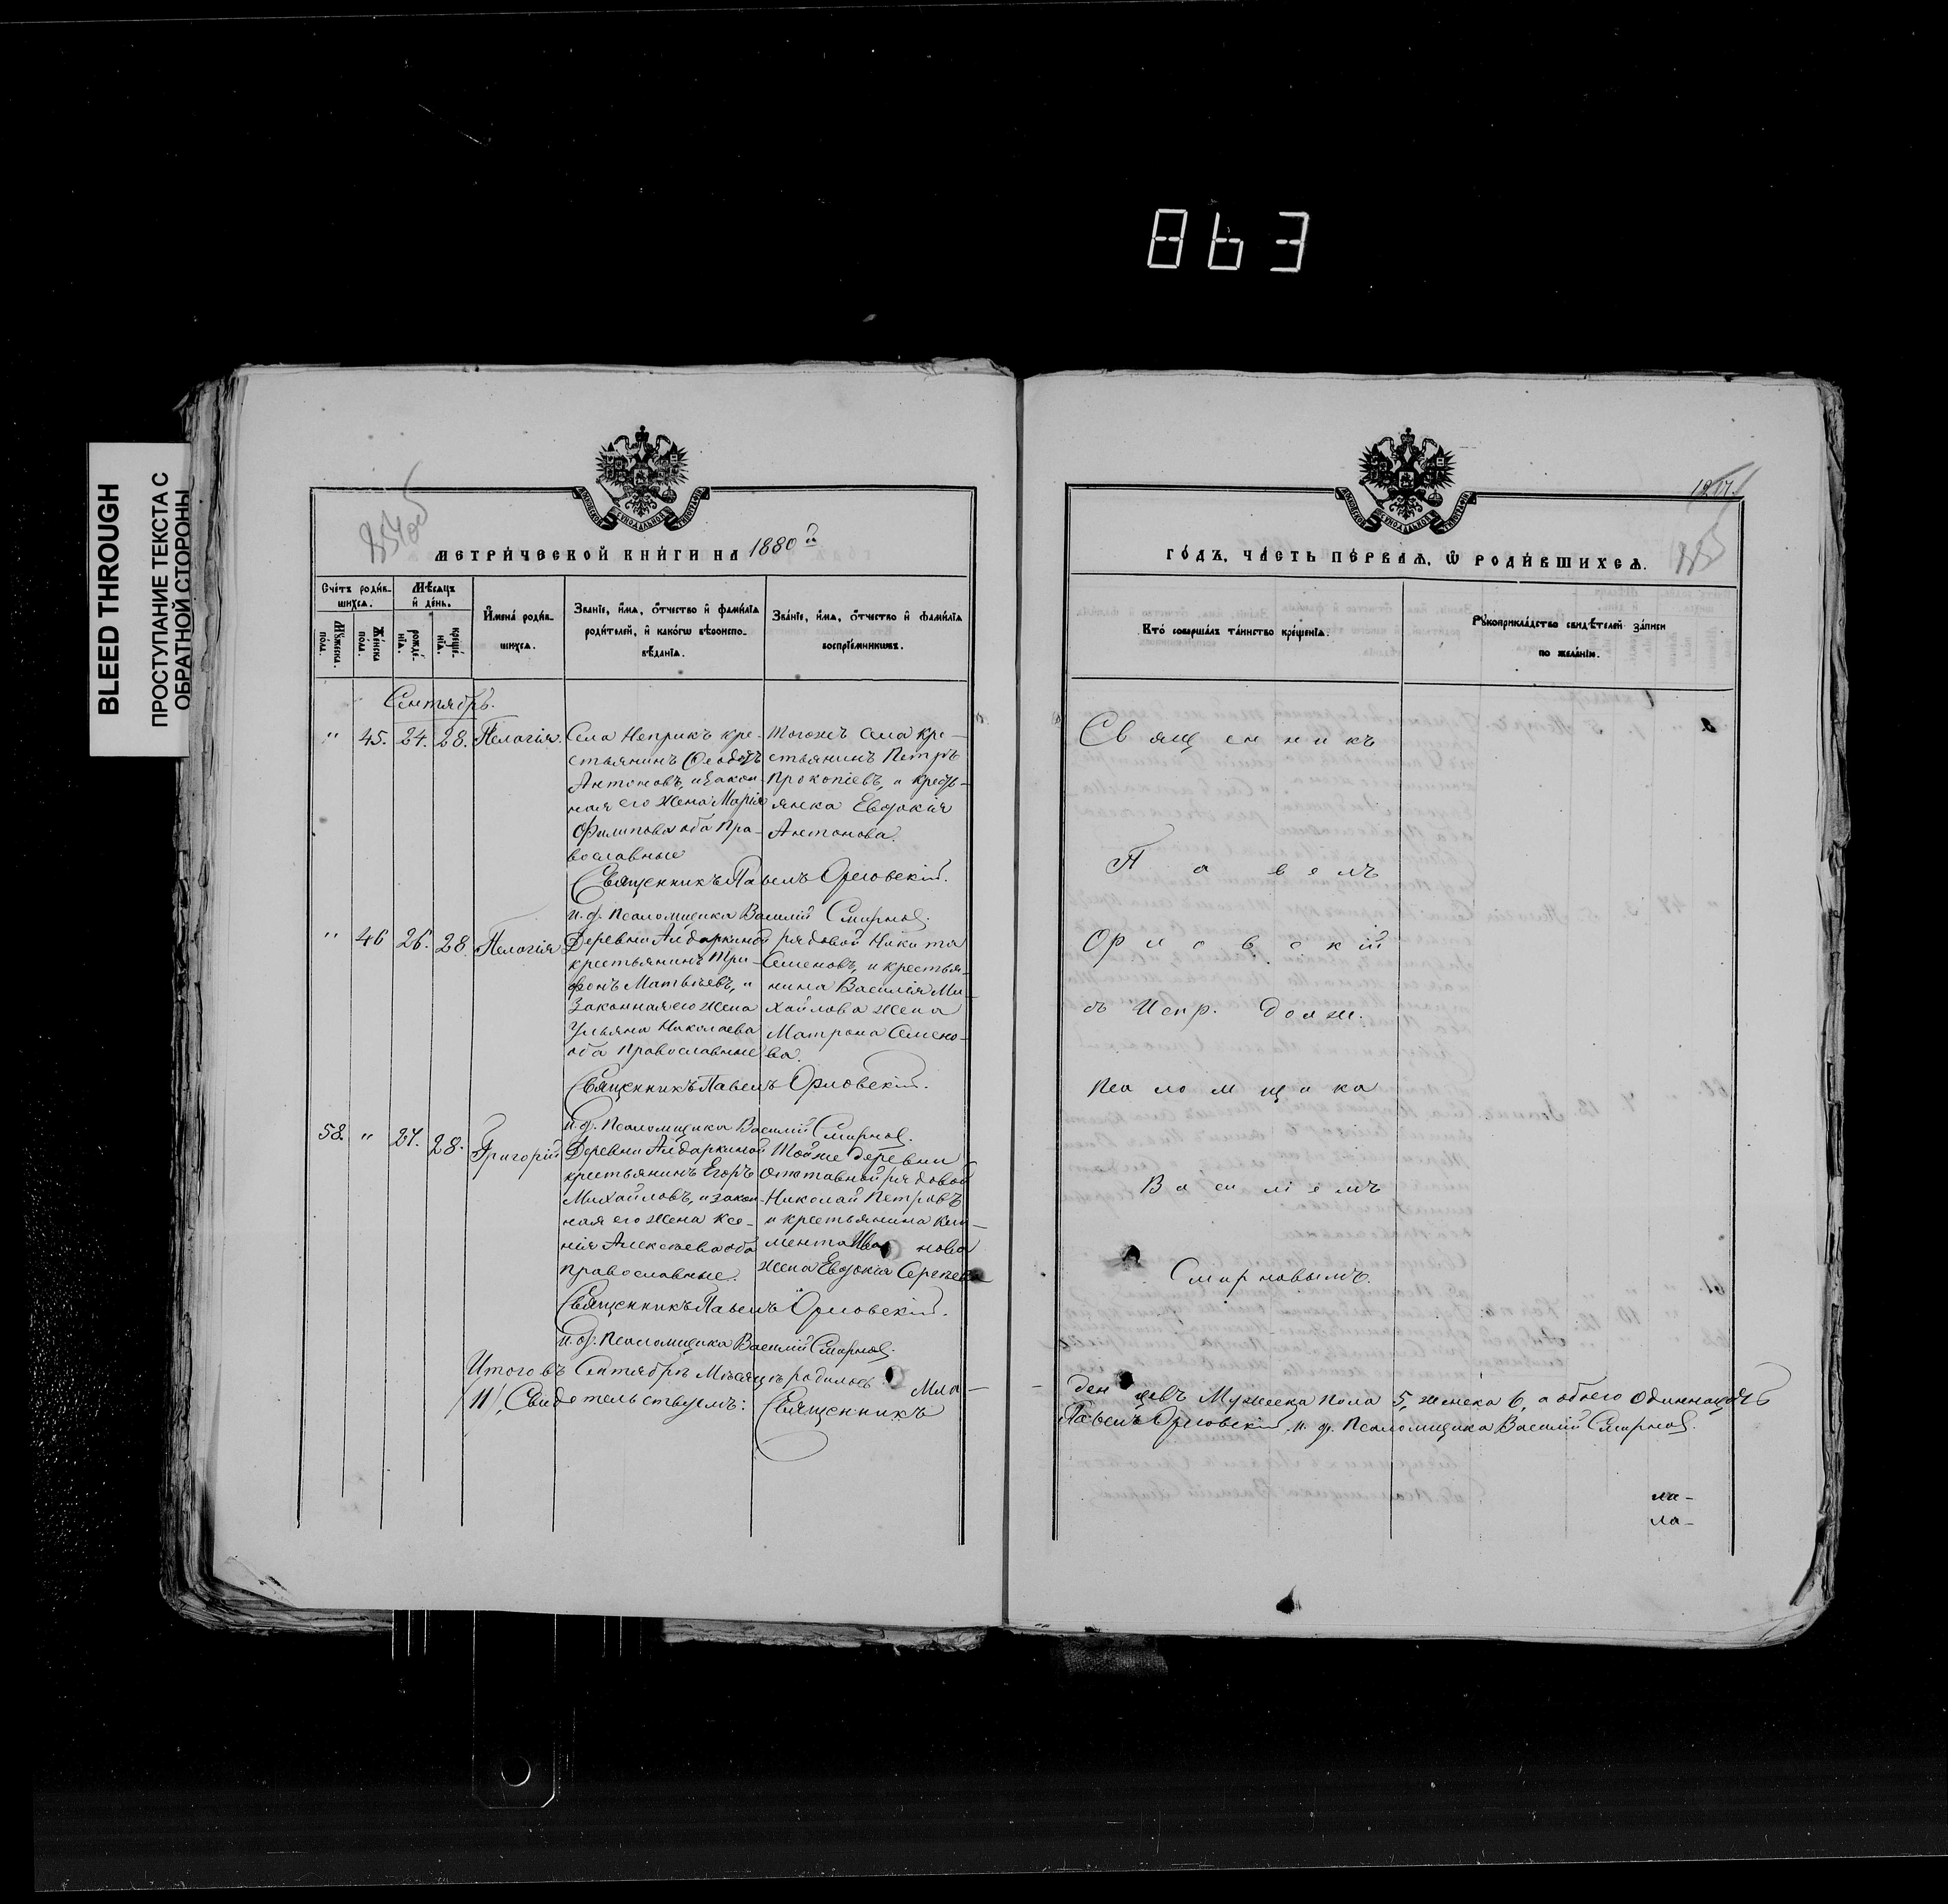 863
BLEED THROUGH
ПРОСТУПАНИЕ ТЕКСТА С
ОБРАТНОЙ СТОРОНЫ
МЕТРИЧЕСКОЙ КНИГИ НА 1880й
Счетъ родив-
шихся.
Мужеска пола.
Женска пола.
Мѣсяцъ
и день.
рождения.
крещенія.
Имена родив-
шихся.
Званіе, имя, отчество и фамилія
родителей, и какого вѣроиспо-
вѣданія.
Званіе, имя, отчество и фамилія
воспріемниковъ.
Сентябрь.
" 45. 24. 28. Пелагія.
Села Неприкъ кре-
стьянинъ Ѳеодотъ
Антоновъ, и закон-
ная его жена Марія
Филипова оба пра-
вославные
Тогожъ села кре-
стьянинъ Петръ
Прокопіевъ, и кресть-
янка Евдокія
Антонова.
Священникъ Павелъ Орловскій.
и. д. Псаломщика Василій Смирнов.
" 46 26. 28. Пелагія
Деревни Алдаркиной
крестьянинъ Три-
фонъ Матвѣевъ, и
законная его жена
Ульяна Николаева
оба православные
рядовой Никита
Семеновъ, и крестья-
нина Василія Ми-
хайлова жена
Матрона Семено-
ва.
Священникъ Павелъ Орловскій.
и. д. Псаломщика Василій Смирнов.
58. " 27. 28. Григорій
Деревни Алдаркиной
крестьянинъ Егоръ
Михайловъ, и закон-
ная его жена Ксе-
нія Алексѣева оба
православные.
Тойже деревни
отставной рядовой
Николай Петровъ
и крестьянина Кли-
мента Ива нова
жена Евдокія Сергѣева
Священникъ Павелъ Орловскій.
и. д. Псаломщика Василій Смирнов.
Итого въ Сентябрѣ Мѣсяцѣ родилось Мла-
/11/, Свидѣтельствуемъ: Священникъ
ГОДЪ, ЧАСТЬ ПЕРВАЯ, Ѡ РОДИВШИХСЯ.
Кто совершалъ таинство крещенія.
Рукоприкладство свидѣтелей записи
по желанію.
Священникъ
Павелъ
Орловскій
съ Испр. долж.
Псаломщика
Василіемъ
Смирновымъ.
ден цовъ Мужеска пола 5, женска 6, а обоего одиннадцать
Павелъ Орловскій, и. д. Псаломщика Василій Смирнов.
ла-
ла-